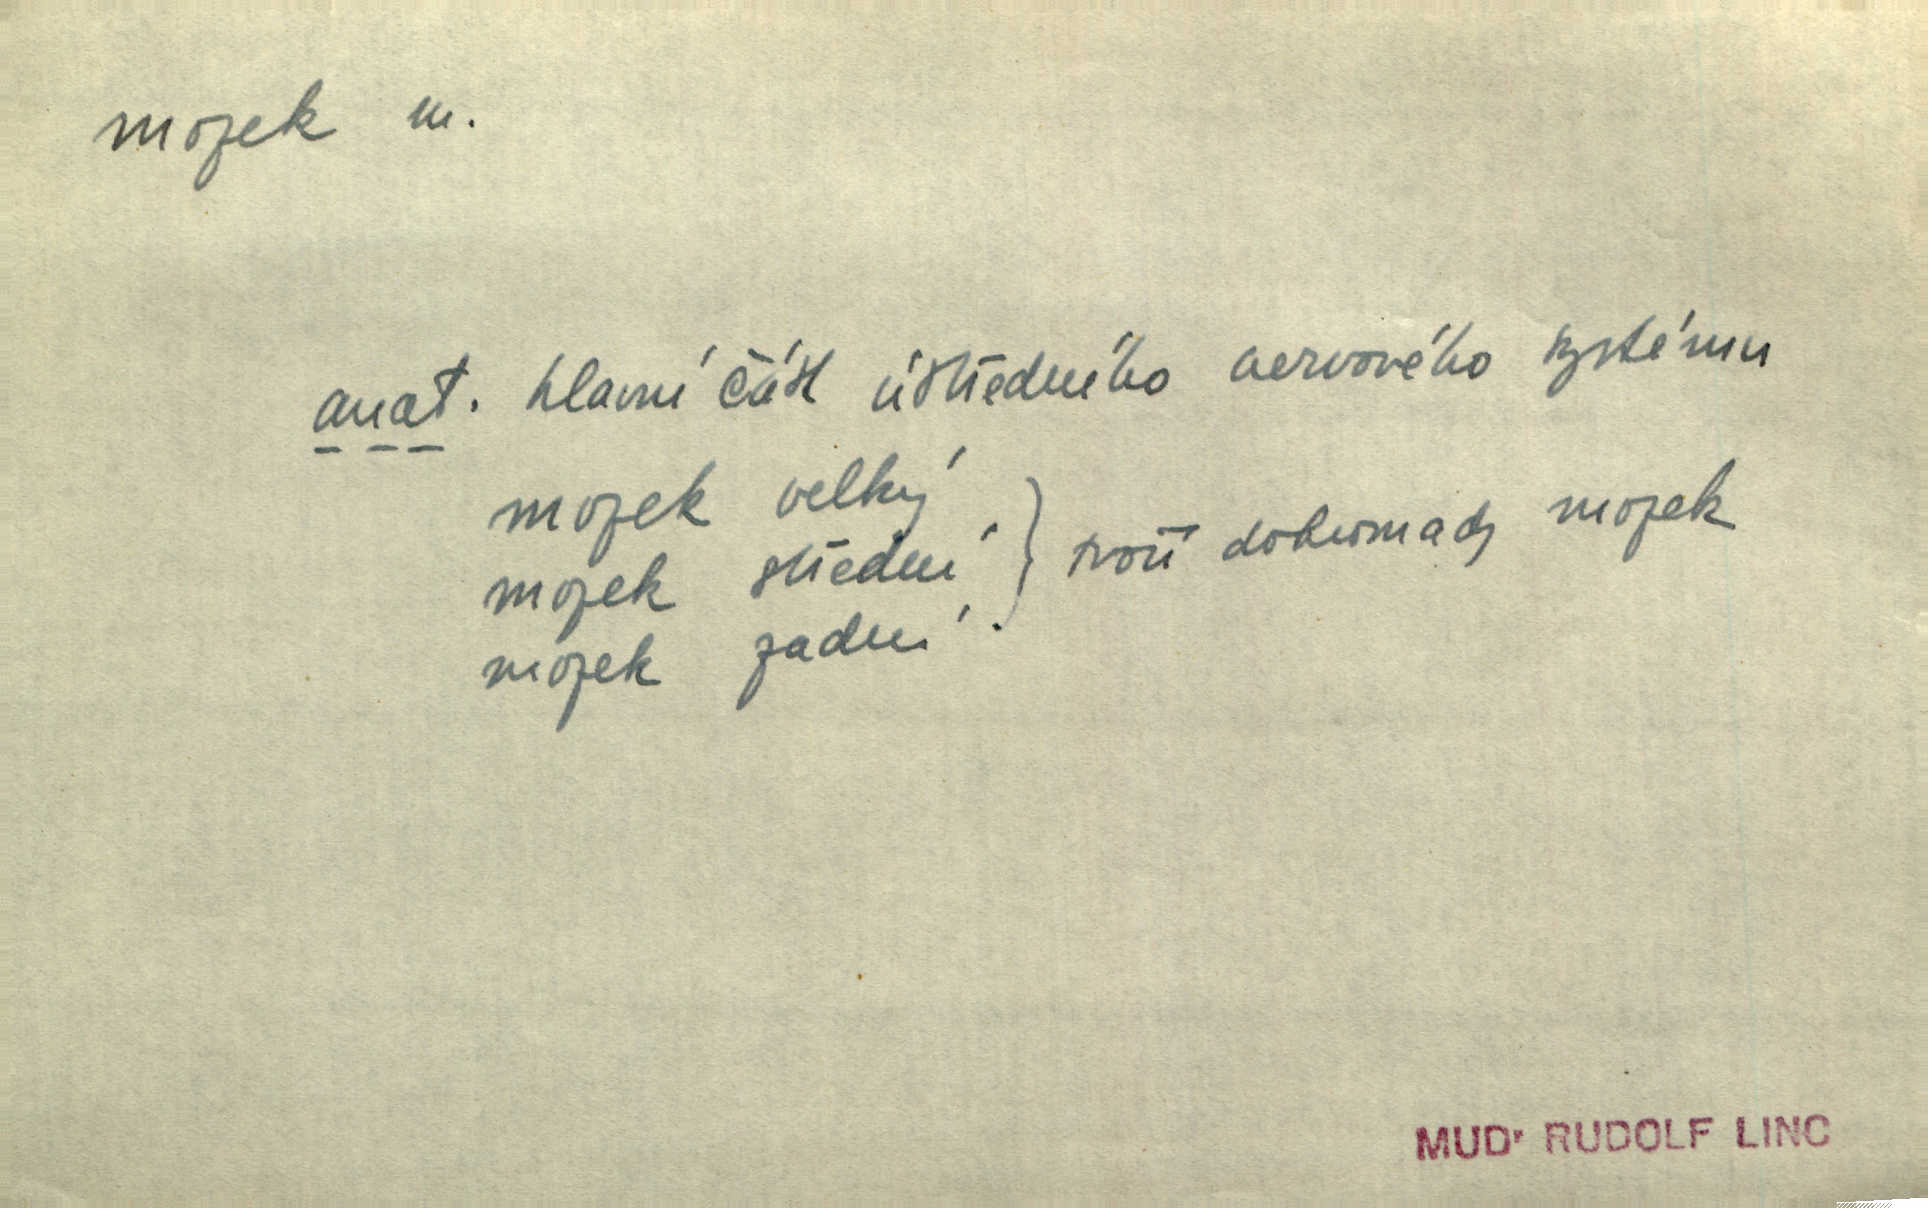 mozek m.
anat. hlavní část ústředního nervového systému
mozek velký
mozek střední } tvoří dohromady mozek
mozek zadní
MUDr RUDOLF LINC